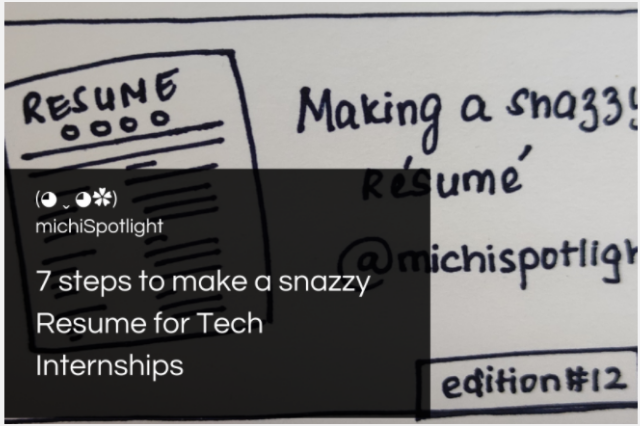 RESUME
Making a snazzy
Résumé
@michispotligh
(◕ ˬ ◕✿)
michiSpotlight
7 steps to make a snazzy
Resume for Tech
Internships
edition#12